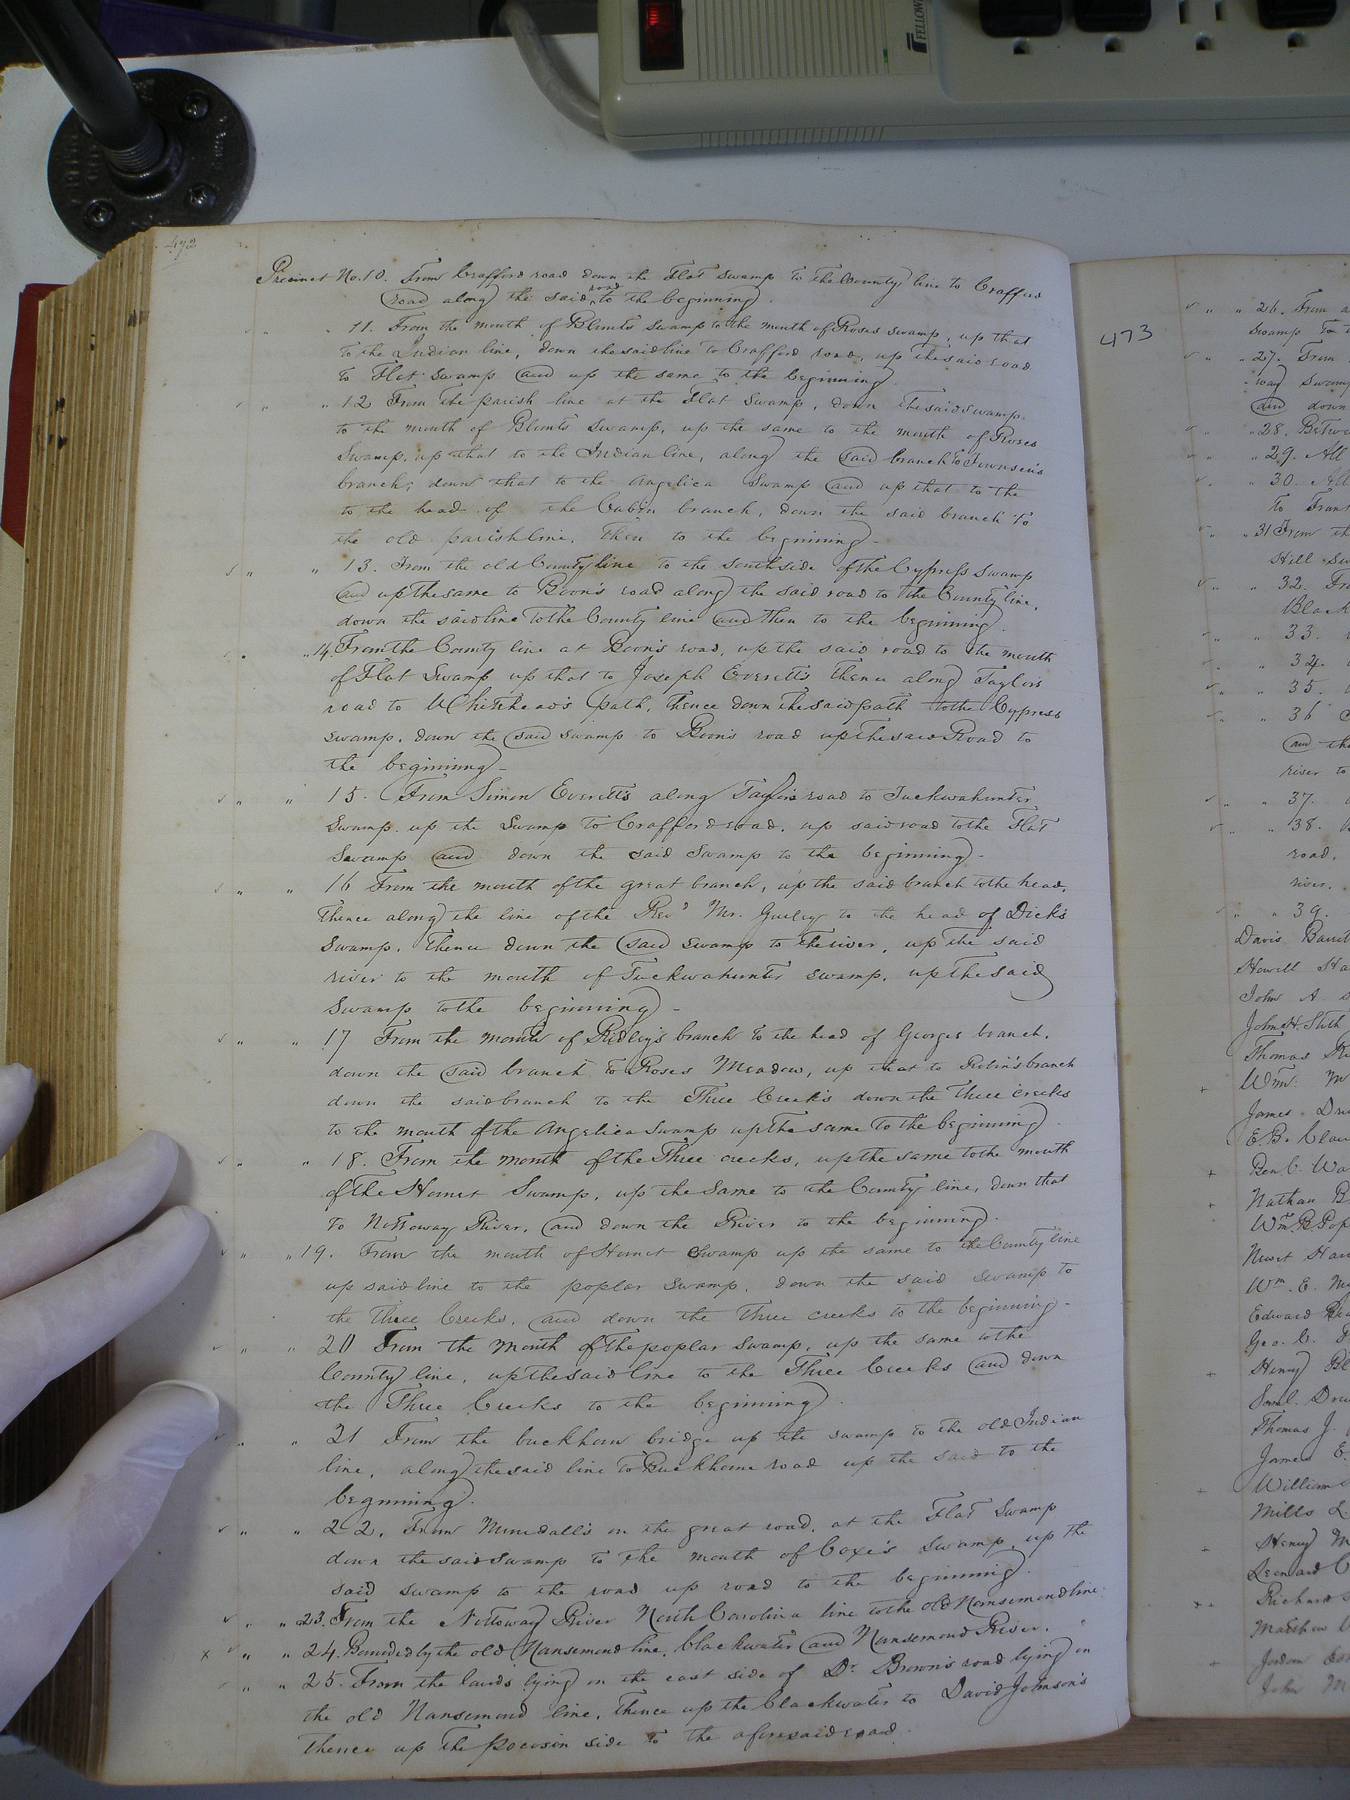 FELLOWES
472
Precinct No. 10. From Crafford road down the Flat Swamp to the County line to Craffords
road along the said road to the beginning.
" " 11. From the mouth of Blunts Swamp to the mouth of Roses Swamp, up that
to the Indian line, down the said line to Crafford road, up the said road
to Flat Swamp and up the same to the beginning
" " 12 From the parish line at the Flat Swamp, down the said swamp.
to the mouth of Blunts Swamp, up the same to the mouth of Roses
Swamp, up that to the Indian line, along the said branch to
branch; down that to the Angelica Swamp and up that to the
to the head of the Cabin branch, down the said branch to
the old parish line, then to the beginning -
" " 13. From the old County line to the south side of the Cypress Swamp
and up the same to Boon's road along the said road to the County line,
down the said line to the County line and then to the beginning.
" 14. From the County line at Boon's road, up the said road to the mouth
of Flat Swamp up that to Joseph Everett's thence along Taylor's
road to Whitehead's path, thence down the said path to the Cypress
Swamp, down the said swamp to Boon's road up the said Road to
the beginning -
" " 15. From Simon Everett's along Taylor's road to Tuckwahunter
Swamp up the Swamp to Crafford road, up said road to the Flat
Swamp and down the said Swamp to the beginning -
" " 16 From the mouth of the great branch, up the said branch to the head,
thence along the line of the Revd Mr. Gurley to the head of Dick's
Swamp, thence down the said swamp to the river, up the said
river to the mouth of Tuckwahunter swamp, up the said
Swamp to the beginning -
" " 17 From the mouth of Ridley's branch to the head of Georges branch,
down the said branch to Roses Meadow, up that to branch
down the said branch to the Three Creeks down the three creeks
to the mouth of the Angelica Swamp up the same to the beginning.
" " 18. From the mouth of the Three creeks, up the same to the mouth
of the Hornet Swamp, up the Same to the County line, down that
to Nottoway River, and down the River to the beginning.
" " 19. From the mouth of Hornet Swamp up the same to the County line
up said line to the poplar Swamp, down the said swamp to
the Three Creeks, and down the three creeks to the beginning -
" " 20 From the mouth of the poplar swamp, up the same to the
County line, up the said line to the Three Creeks and down
the Three Creeks to the beginning.
" " 21 From the buckhorn bridge up the swamp to the old Indian
line, along the said line to Buckhorne road up the said to the
beginning.
" " 22. From on the great road, at the Flat Swamp
down the said swamp to the mouth of Coxe's Swamp, up the
said swamp to the road up road to the beginning.
" " 23. From the Nottoway River North Carolina line to the old Nansemond line.
" " 24. Bounded by the old Nansemond line, blackwater and Nansemond River.
" " 25. From the lands lying on the east side of Dr. Brown's road lying on
the old Nansemond line, thence up the blackwater to David Johnson's
thence up the pocoson side to the aforesaid road.
473
" " 26. From a
Swamp to t
" " 27. From
way Swamp
and down
" " 28. Betwe
" " 29. All
" " 30. All
to Fran
" " 31 From th
Hill Sw
" " 32. Fr
Black
" " 33.
" " 34.
" " 35.
" " 36
and th
river to
" " 37.
" " 38.
road,
river.
" " 39.
Davis Barrett
Howell Ha
John A
John H. Stith
Thomas Ri
Wm. M
James Dru
E. B. Clau
Ben C. Wa
Nathan B
Wm. B. Pop
Newit Har
Wm. E. My
Edward
Geo. C.
Henry Bl
Saml. Dru
Thomas J.
James E.
William
Mills L
Henry M
Leonard C
Richard
Matthew
Jordan Ed
John M